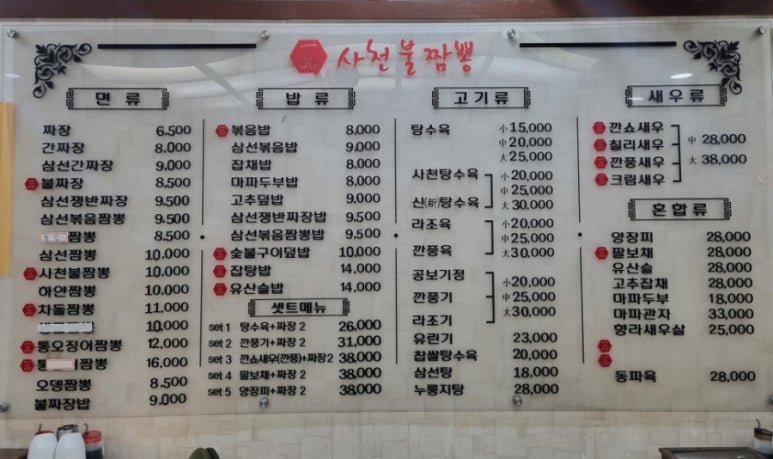 사천불짬뽕
면류
짜장 6.500
간짜장 8.000
삼선간짜장 9.000
불짜장 8,500
삼선쟁반짜장 9.500
삼선볶음짬뽕 9.500
짬뽕 8.500
삼선짬뽕 10.000
사천불짬뽕 10,000
하얀짬뽕 10.000
차돌짬뽕 11,000
10.000
통오징어짬뽕 12,000
짬뽕 16,000
오뎅짬뽕 8.500
불짜장밥 9.000
밥류
볶음밥 8.000
삼선볶음밥 9.000
잡채밥 8,000
마파두부밥 8,000
고추덮밥 9,000
삼선쟁반짜장밥 9,500
삼선볶음짬뽕밥 9.500
숯불구이덮밥 10.000
잡탕밥 14,000
유산슬밥 14,000
셋트메뉴
set 1 탕수육+짜장 2 26,000
set 2 깐풍기+짜장 2 31,000
set 3 깐쇼새우(깐풍)+짜장2 38,000
set 4 팔보채+짜장 2 38,000
set 5 양장피+짜장 2 38,000
고기류
탕수육 小 15,000
中 20,000
大 25,000
사천탕수육 小 20,000
中 25,000
신(新)탕수육 大 30,000
라조육 小 20,000
中 25,000
깐풍육 大 30,000
공보기정
小 20,000
깐풍기 中 25,000
大 30,000
라조기
유린기 23,000
찹쌀탕수육 20,000
삼선탕 18,000
누룽지탕 28,000
새우류
깐쇼새우
칠리새우 中 28,000
깐풍새우 大 38,000
크림새우
혼합류
양장피 28,000
팔보채 28,000
유산슬 28,000
고추잡채 28,000
마파두부 18,000
마파관자 33,000
향라새우살 25,000
동파육 28,000